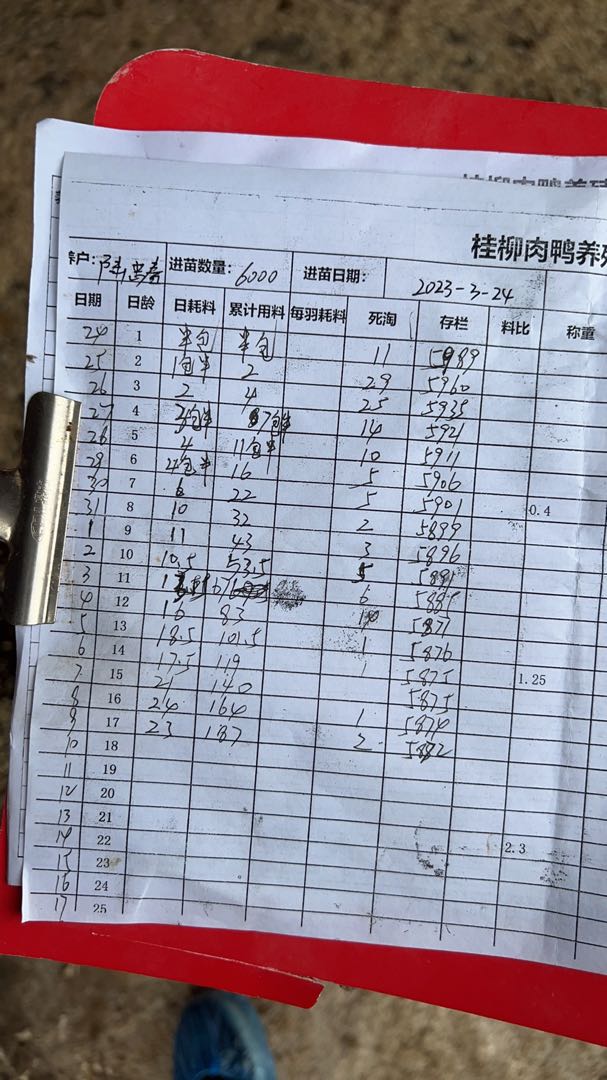 桂柳肉鸭养殖
养户: 进苗数量: 6000 进苗日期: 2023-3-24
日期 日龄 日耗料 累计用料 每羽耗料 死淘 存栏 料比 称重
24 1 半包 半包 11 5989
25 2 1包半 2 29 5960
26 3 2 4 25 5935
27 4 3包半 7包半 14 5921
28 5 4 11包半 10 5911
29 6 4包半 16 5 5906
30 7 6 22 5 5901 0.4
31 8 10 32 2 5899
1 9 11 43 3 5896
2 10 10.5 53.5 5 5891
3 11 6 5885
4 12 16 83 5871
5 13 18.5 101.5 1 5876
6 14 17.5 119 1 5875 1.25
7 15 21 140 5875
8 16 24 164 1 5874
9 17 23 187 2
10 18
11 19
12 20
13 21
14 22 2.3
15 23
16 24
17 25